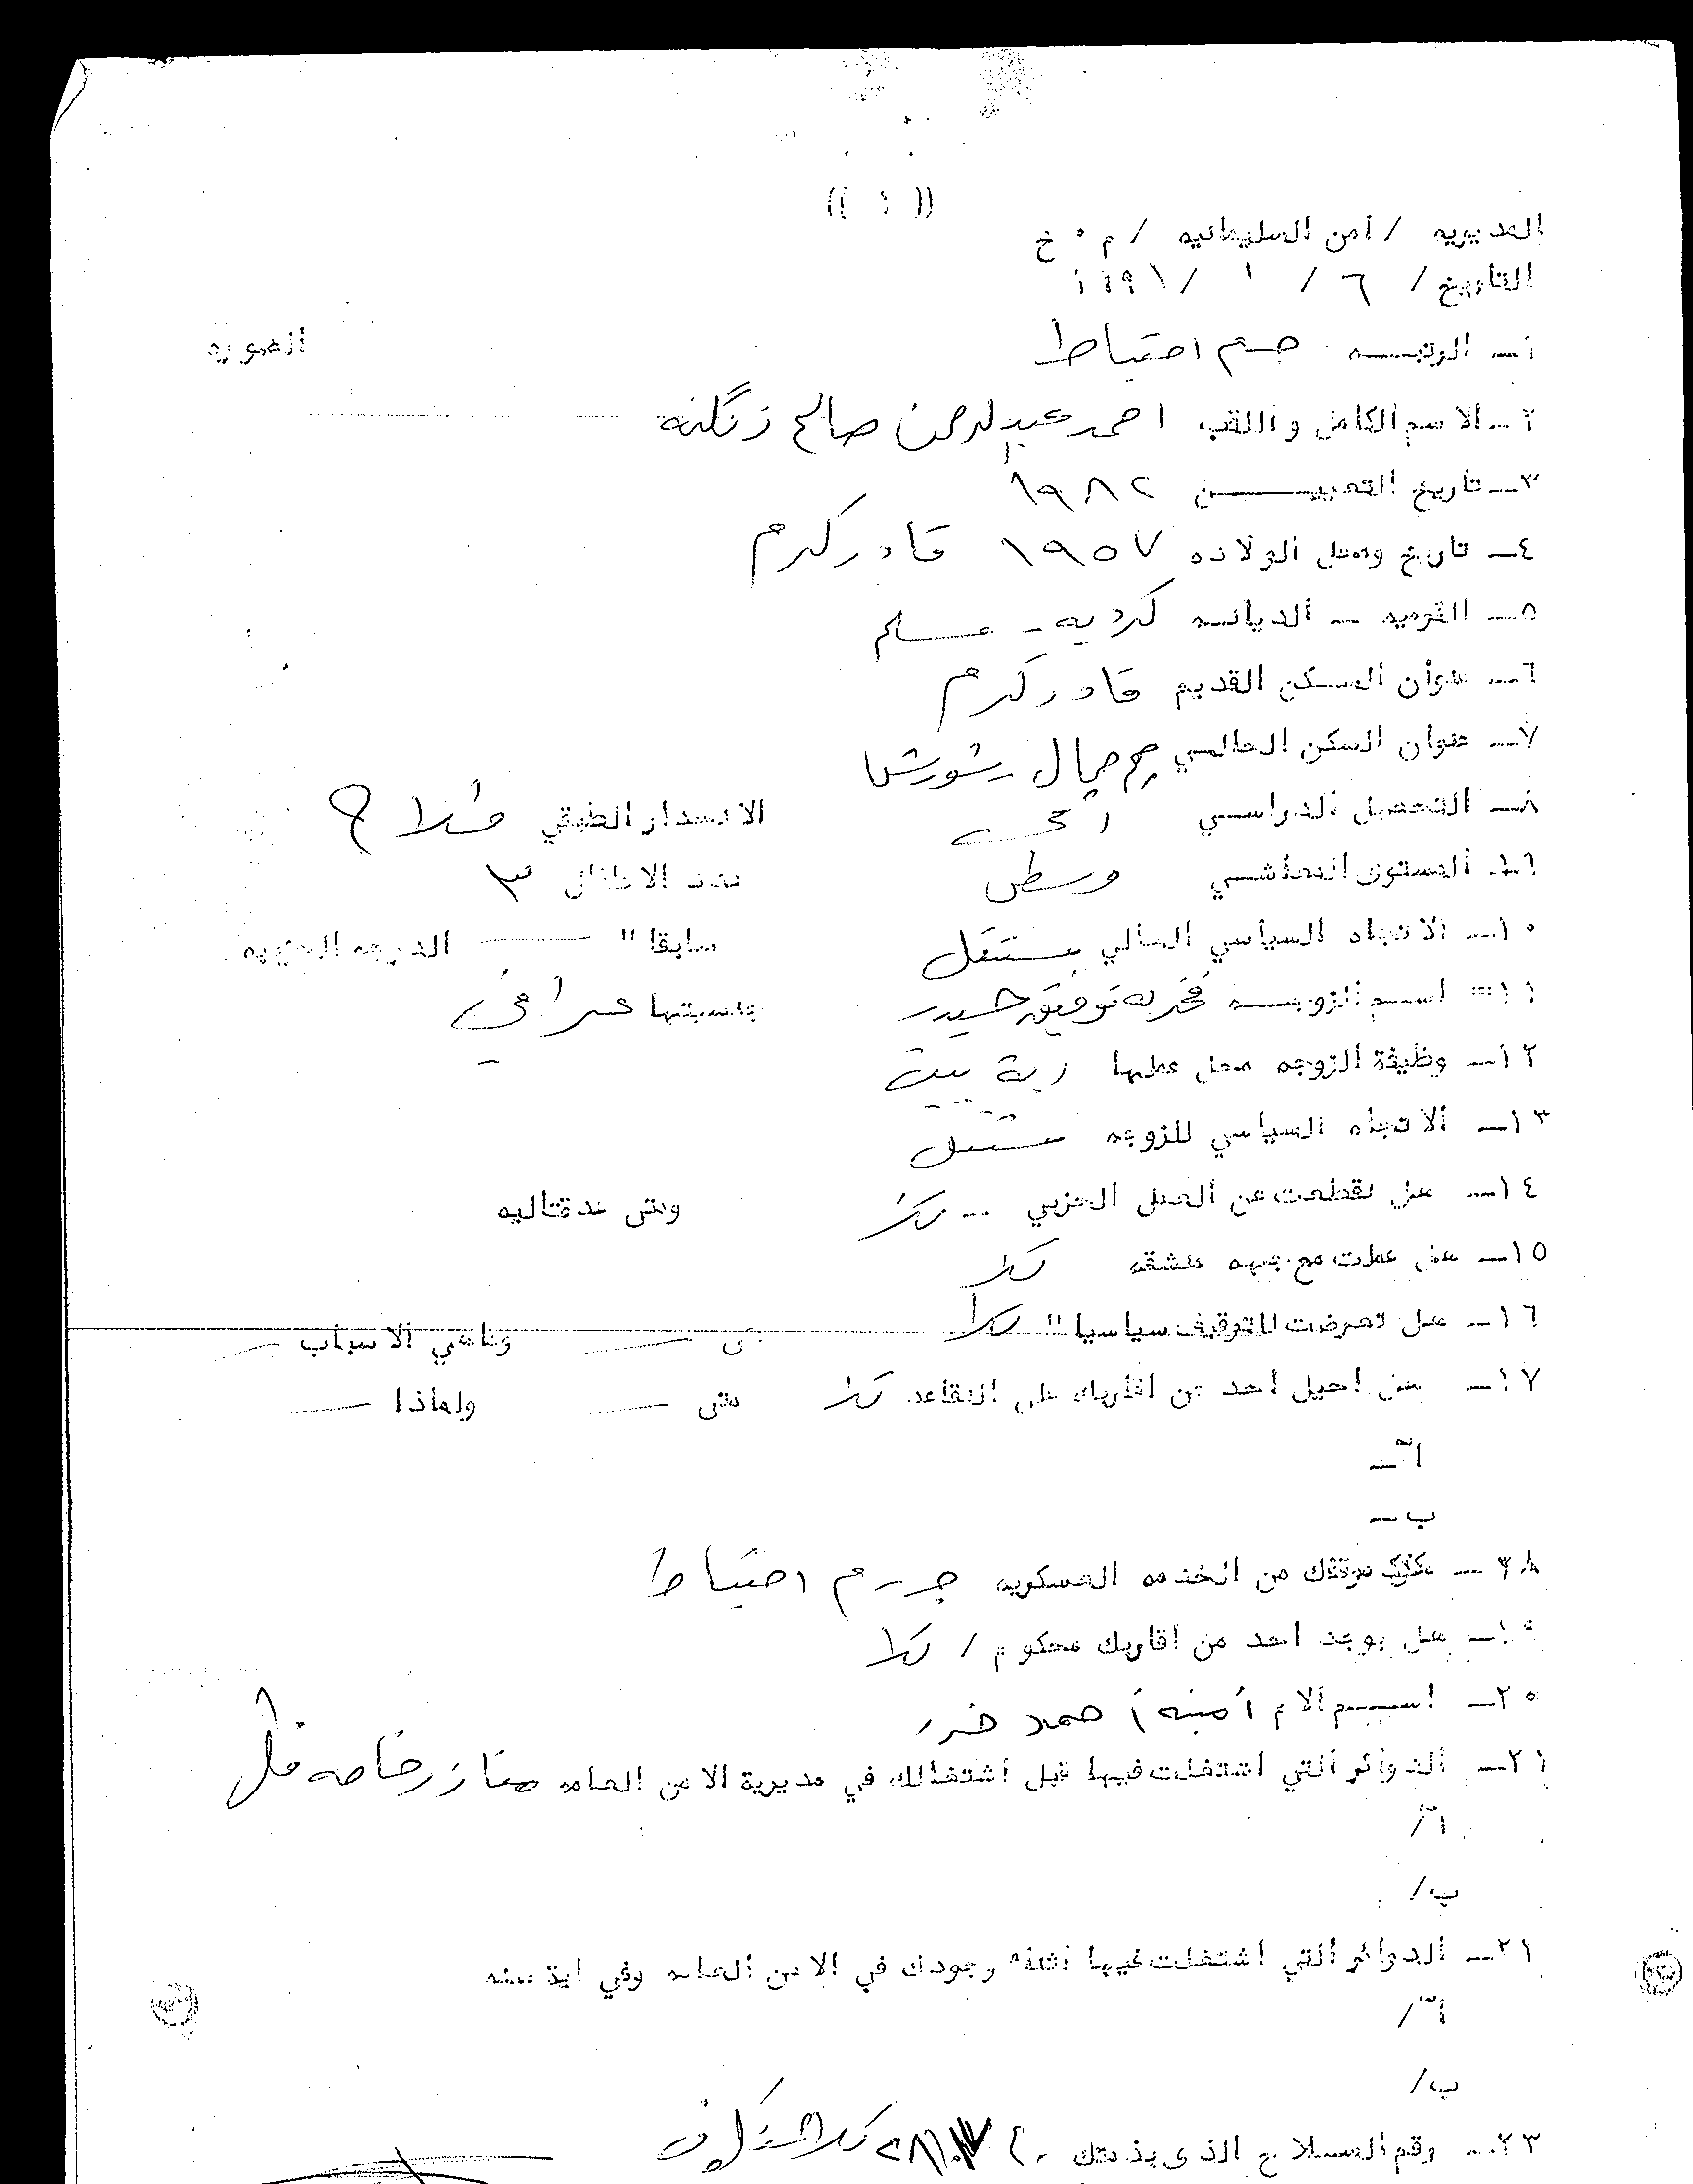 (( ١ ))
المديريه / امن السليمانيه / م ٠ خ
التاريخ / ٦ / ١ / ١٩٩١
١ـ الرتبـــه ج م احتياط
الصوره
٢ـ الاسم الكامل واللقب احمد عبدالرحمن صالح زنگنه
٣ـ تاريخ التعييـــن ١٩٨٢
٤ـ تاريخ ومحل الولاده ١٩٥٧ قادر كرم
٥ـ القوميه ـ الديانــه كرديه ـ مسلم
٦ـ عنوان المسكن القديم قادر كرم
٧ـ عنوان السكن الحالــي جم جمال شورش
٨ـ التحصيل الدراســي امي الانحدار الطبقي فلاح
٩ـ المستوى المعاشــي وسط عدد الاطفال ٣
١٠ـ الاتجاه السياسي الحالي مستقل سابقا" ـــ الدرجه الحزبيه
١١ـ اســم الزوجــــه فخريه توفيق حيدر جنسيتها عراقي
١٢ـ وظيفة الزوجه محل عملها ربة بيت
١٣ـ الاتجاه السياسي للزوجه مستقل
١٤ـ هل نقطعت عن العمل الحزبي ـ كلا ومتى
١٥ـ هل عملت مع جهه منشقه كلا
١٦ـ هل تعرضت للتوقيف سياسيا" كلا ــــ وماهي الاسباب ــ
١٧ـ هل احيل احد من اقاربك على التقاعد كلا متى ـــ ولماذا ـــ
آـ
ب ـ
١٨ـ موقفك من الخدمه العسكريه ج م احتياط
١٩ـ هل يوجد احد من اقاربك محكوم / كلا
٢٠ـ اســـم الام امينه احمد
٢١ـ الدوائر التي اشتغلت فيها قبل اشتغالك في مديرية الامن العامه مفارز خاصه
آ/
ب/
٢١ـ الدوائر التي اشتغلت فيها اثناء وجودك في الامن العامه وفي اية سنه
آ/
ب/
٢٣ـ رقم الســلاح الذي بذمتك كلاشنكوف